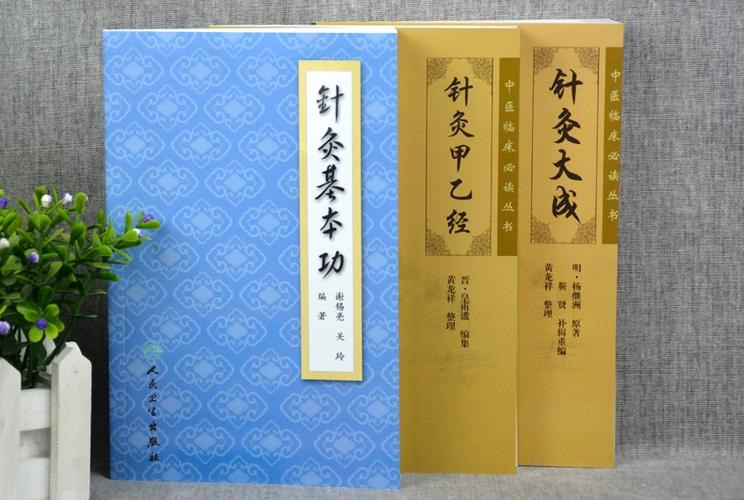 針灸基本功
谢锡亮 关 玲
编著
人民卫生出版社
针灸甲乙经
中医临床必读丛书
晋·皇甫谧 编集
黄龙祥 整理
针灸大成
中医临床必读丛书
明·杨继洲 原著
靳 贤 补辑重编
黄龙祥 整理